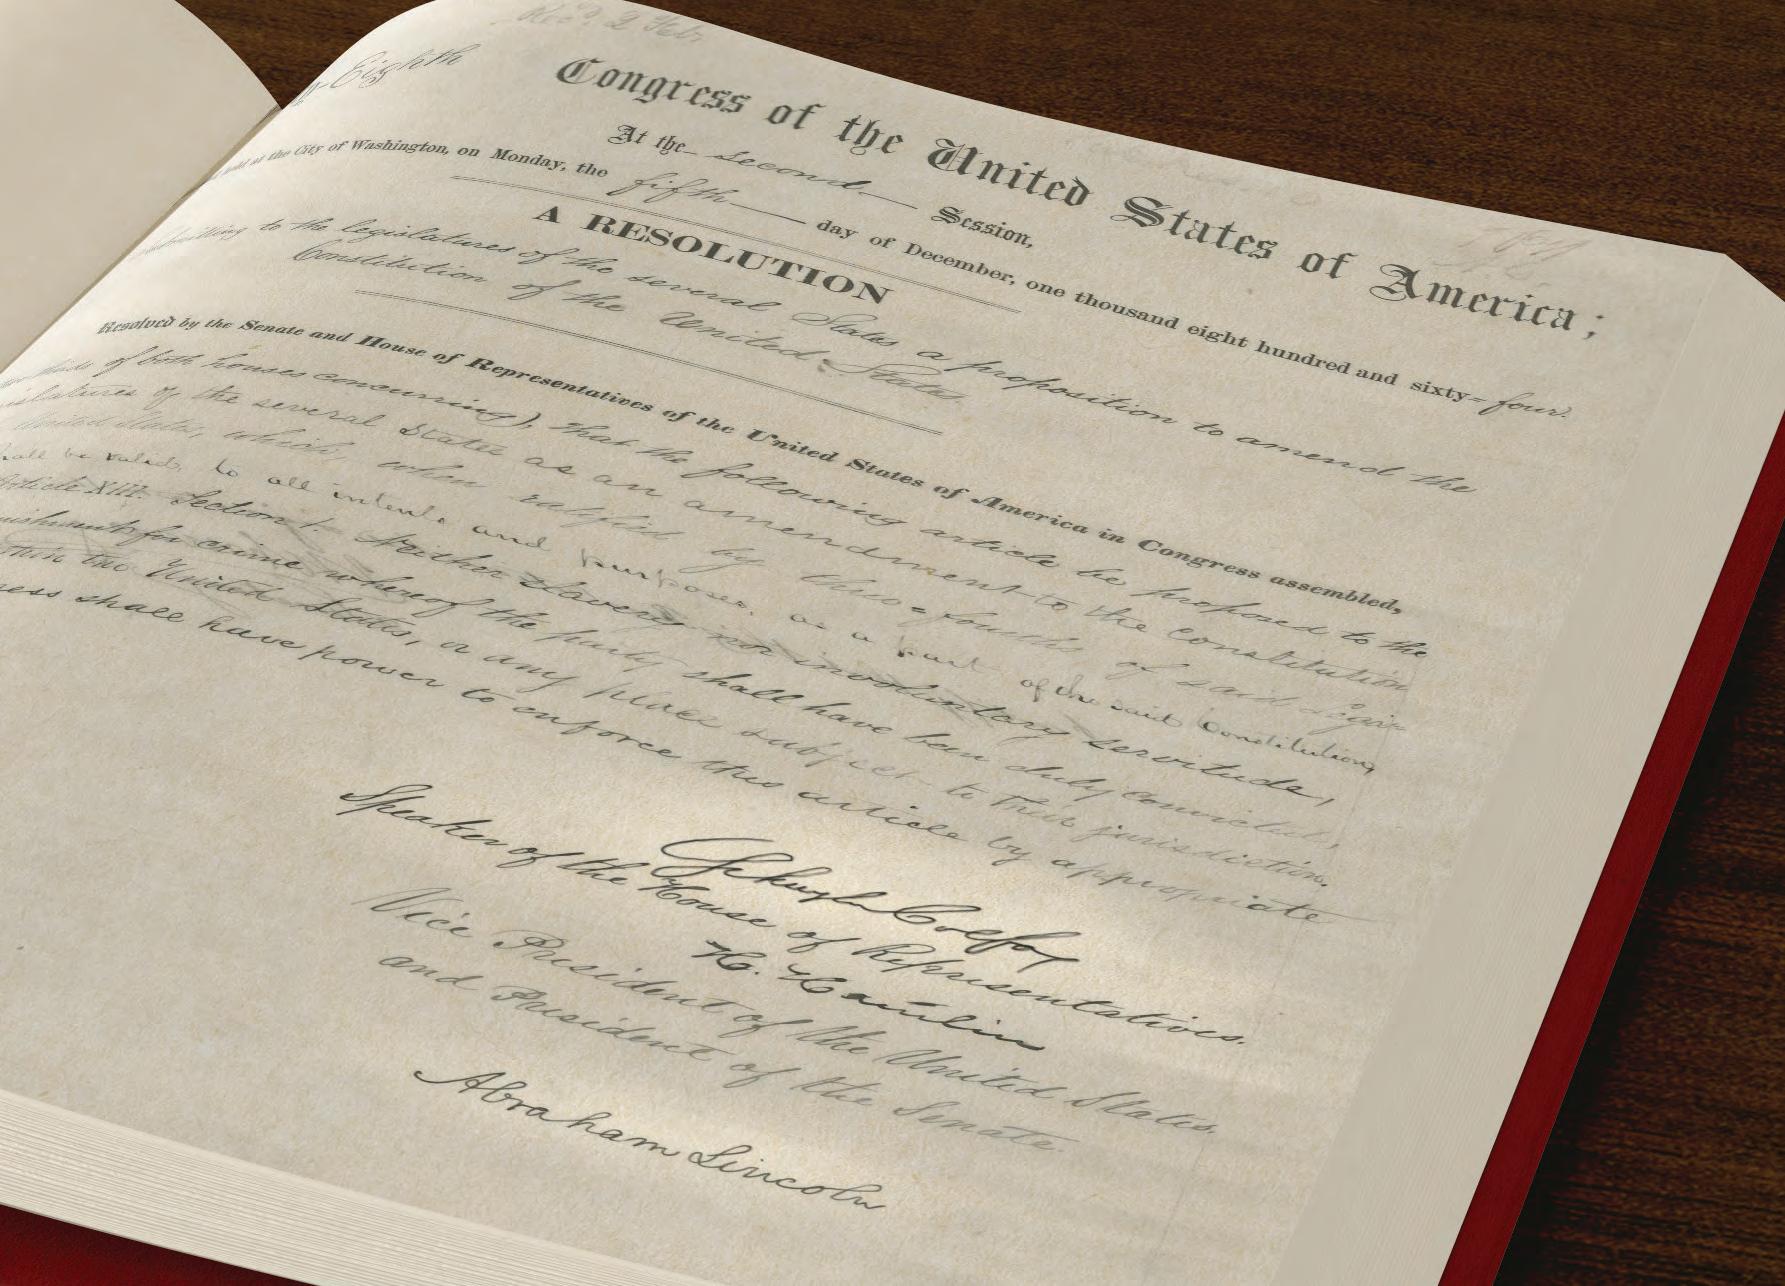 Eighth
Congress of the United States of America;
At the second Session,
at the City of Washington, on Monday, the fifth day of December, one thousand eight hundred and sixty-four.
A RESOLUTION
to the legislatures of the several States a proposition to amend the
Constitution of the United States.
Resolved by the Senate and House of Representatives of the United States of America in Congress assembled,
of both houses concurring), that the following article be proposed to the
of the several States as an amendment to the Constitution
United States, which, when ratified by three-fourths of said Legis-
shall be valid, to all intents and purposes, as a part of the said Constitution,
Article XIII. Section 1. Neither slavery nor involuntary servitude,
for crime whereof the party shall have been duly convicted,
the United States, or any place subject to their jurisdiction.
shall have power to enforce this article by appropriate
Schuyler Colfax
Speaker of the House of Representatives.
H. Hamlin
Vice President of the United States,
and President of the Senate.
Abraham Lincoln